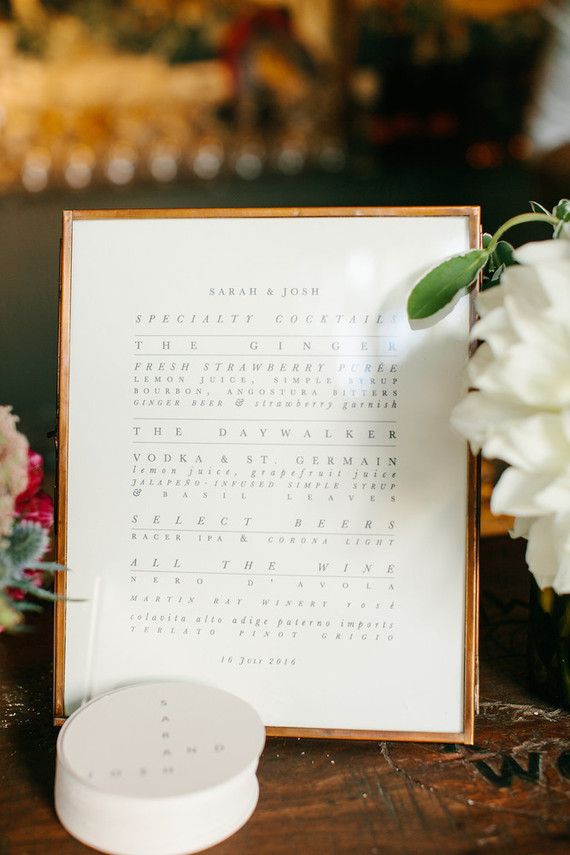 SARAH & JOSH
SPECIALTY COCKTAILS
THE GINGER
FRESH STRAWBERRY PURÉE
LEMON JUICE, SIMPLE SYRUP
BOURBON, ANGOSTURA BITTERS
GINGER BEER & strawberry garnish
THE DAYWALKER
VODKA & ST. GERMAIN
lemon juice, grapefruit juice
JALAPEÑO-INFUSED SIMPLE SYRUP
& BASIL LEAVES
SELECT BEERS
RACER IPA & CORONA LIGHT
ALL THE WINE
NERO D'AVOLA
MARTIN RAY WINERY rosé
colavita alto adige paterno imports
TERLATO PINOT GRIGIO
16 July 2016
SARAH
AND
JOSH